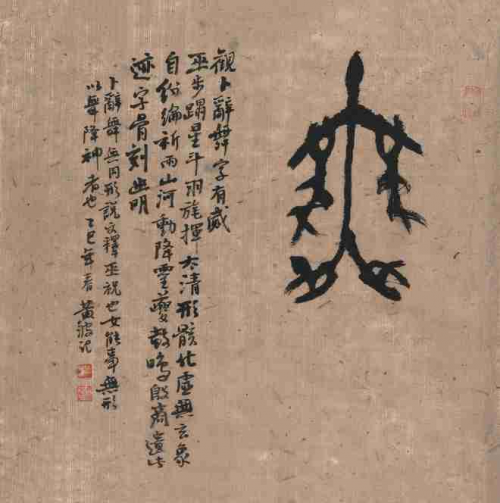 舞
觀卜辭舞字有感
巫步躡星斗羽旄揮太清形骸化虛無玄象
自紛綸祈雨山河動降靈夔鼓鳴殷商遺此
迹字骨刻幽明
卜辭舞無同形說文釋巫祝也女能事無形
以舞降神者也乙巳年春黃記